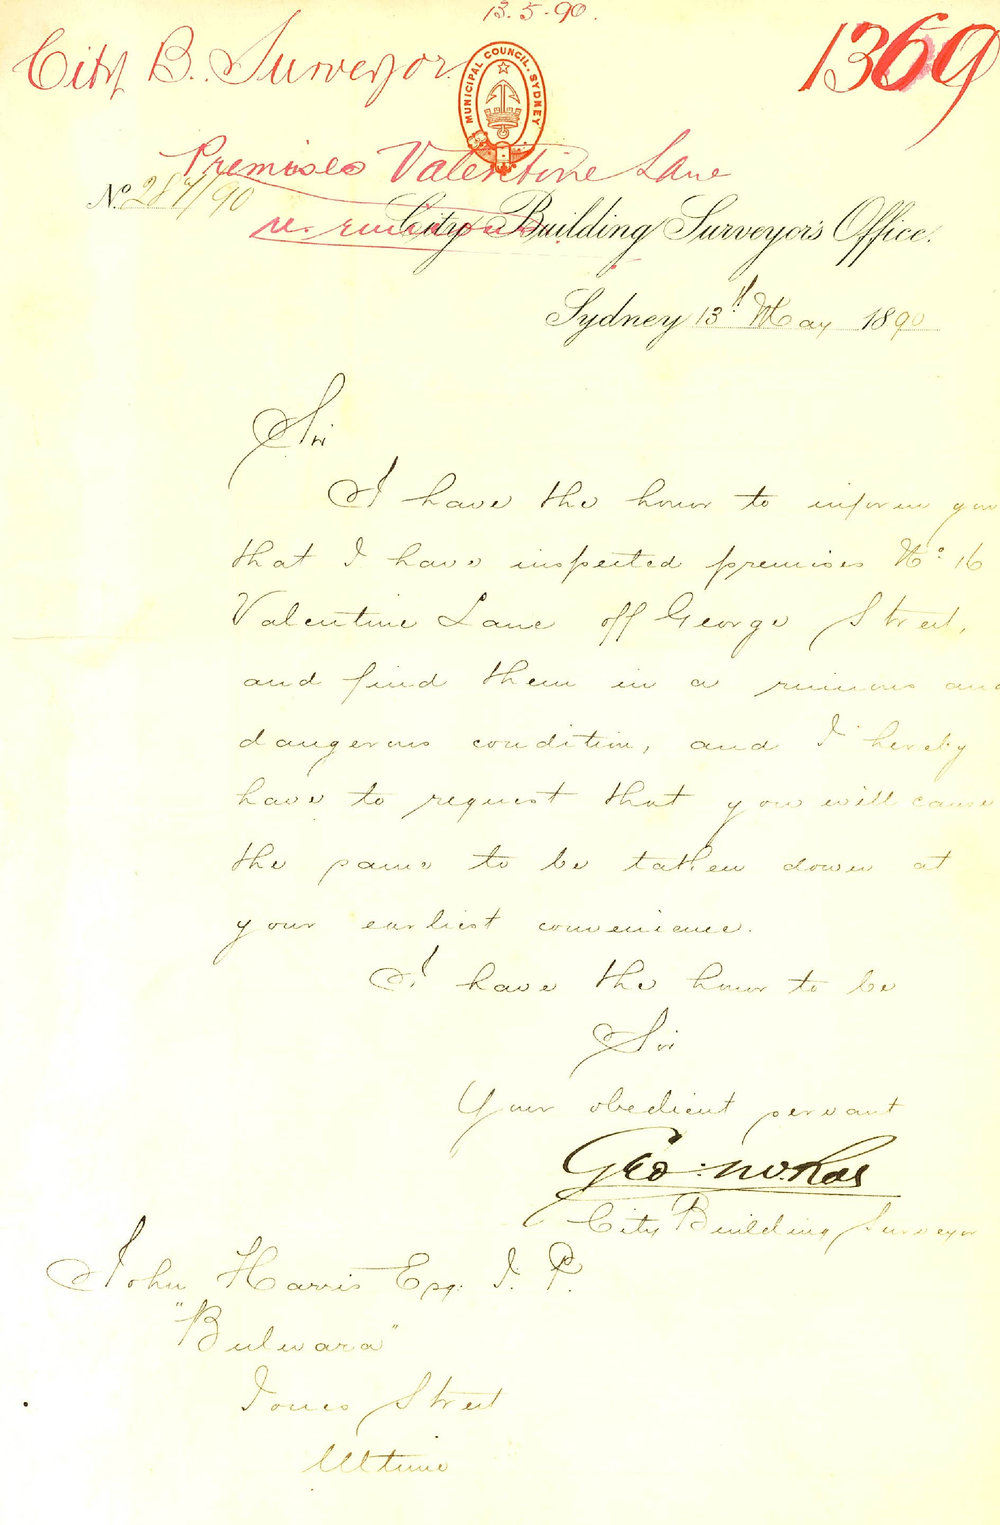 13.5.90.
City B. Surveyor
1369
MUNICIPAL COUNCIL. SYDNEY
Premises Valentine Lane
No 287/90
re ruinous
City Building Surveyor's Office.
Sydney 13th May 1890
Sir
I have the honor to inform you
that I have inspected premises No 16
Valentine Lane off George Street,
and find them in a ruinous and
dangerous condition, and I hereby
have to request that you will cause
the same to be taken down at
your earliest convenience.
I have the honor to be
Sir
Your obedient servant
Geo:
City Building Surveyor
John Harris Esq. J. P.
"Bulwara"
Jones Street
Ultimo